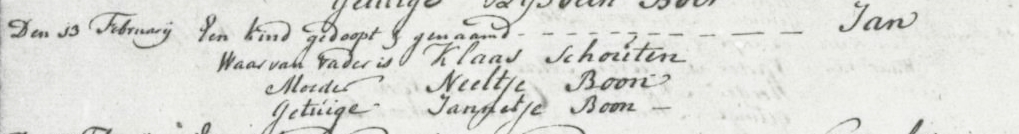 Getuige Lijsbeth Boon
Den 13 February Een kind gedoopt & genaamd - - - - - - - - - - - Jan
Waar van vader is Klaas Schouten
Moeder Neeltje Boon
Getuige Jannetje Boon -